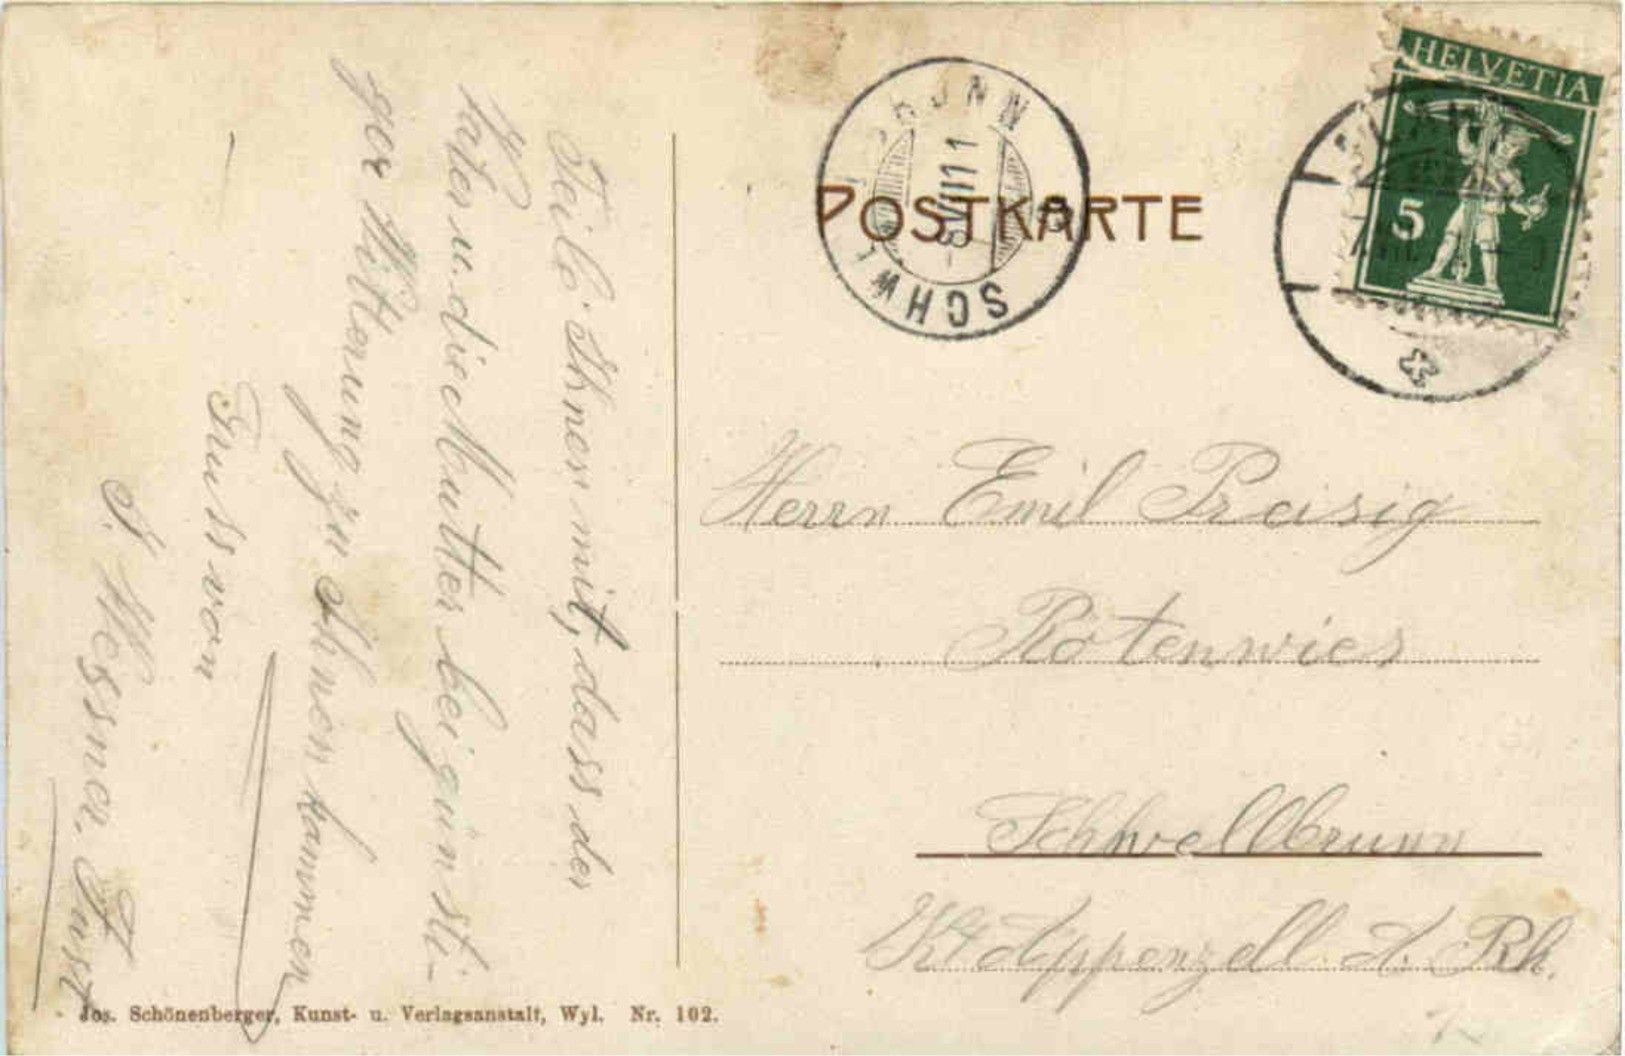 Teile Ihnen mit, dass der
Vater u. die Mutter bei günsti-
ger Witterung zu Ihnen kommen
Gruss von
J. Messner. Just
POSTKARTE
SCHWELLBRUNN
HELVETIA
5
Herrn Emil Preisig
Rotenwies
Schwellbrunn
Kt. Appenzell A. Rh.
Jos. Schönenberger, Kunst- u. Verlagsanstalt, Wyl. Nr. 102.